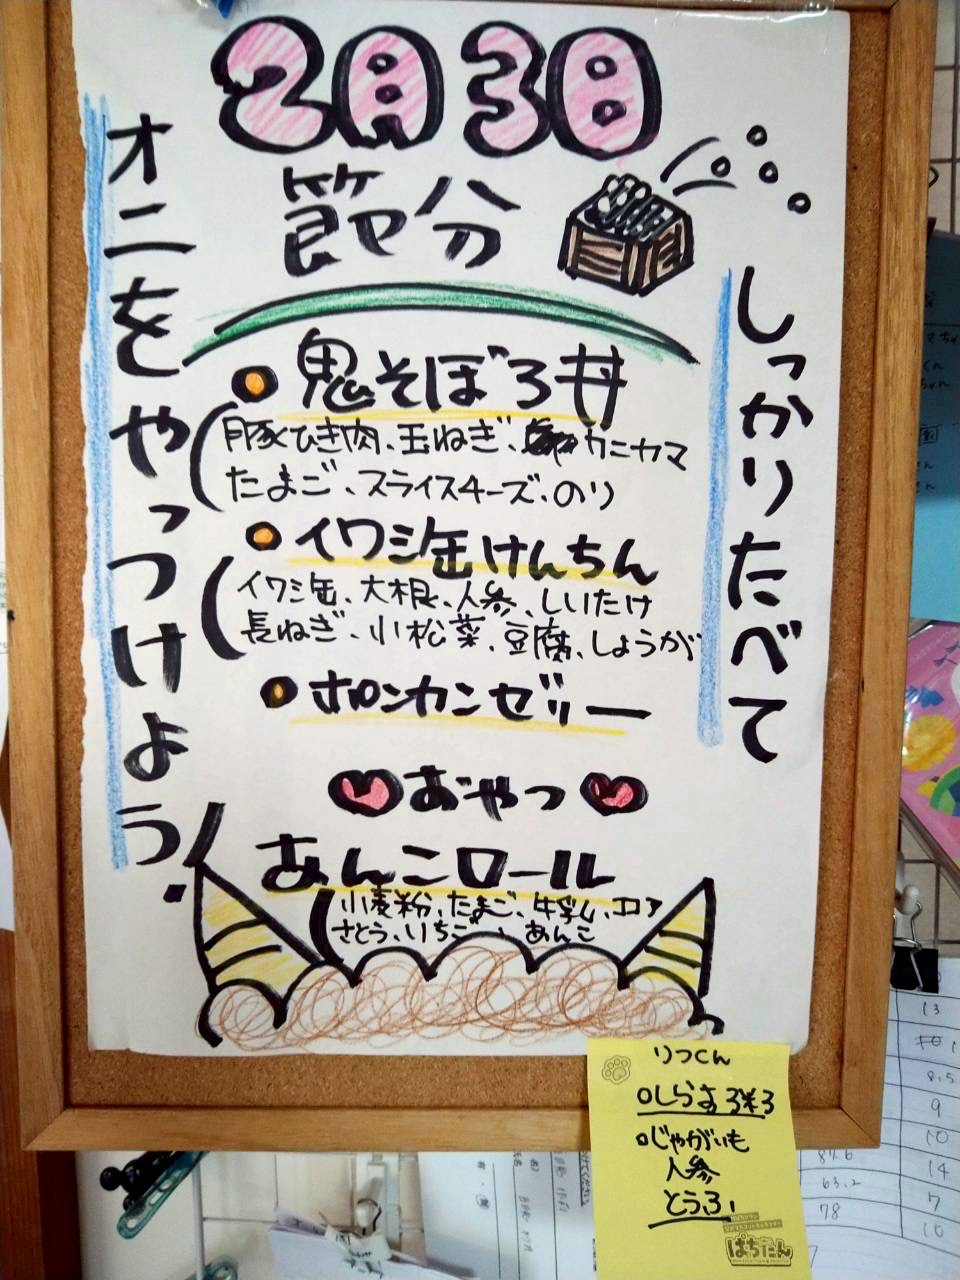 2月3日
節分
しっかりたべて
オニをやっつけよう!
鬼そぼろ丼
豚ひき肉、玉ねぎ、カニカマ
たまご、スライスチーズ、のり
イワシ缶けんちん
イワシ缶、大根、人参、しいたけ
長ねぎ、小松菜、豆腐、しょうが
ポンカンゼリー
おやつ
あんこロール
小麦粉、たまご、牛乳、ココア
さとう、いちご、あんこ
りつくん
しらす
じゃがいも
人参
とうふ
ぱちたん
13
8.5
9
10
14
63.2
7
78
10